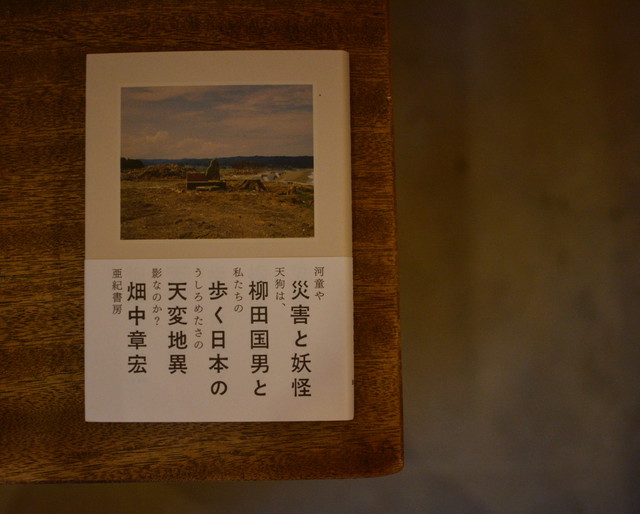 河童や
災害と妖怪
天狗は、
柳田国男と
私たちの
歩く日本の
うしろめたさの
天変地異
影なのか？
畑中章宏
亜紀書房